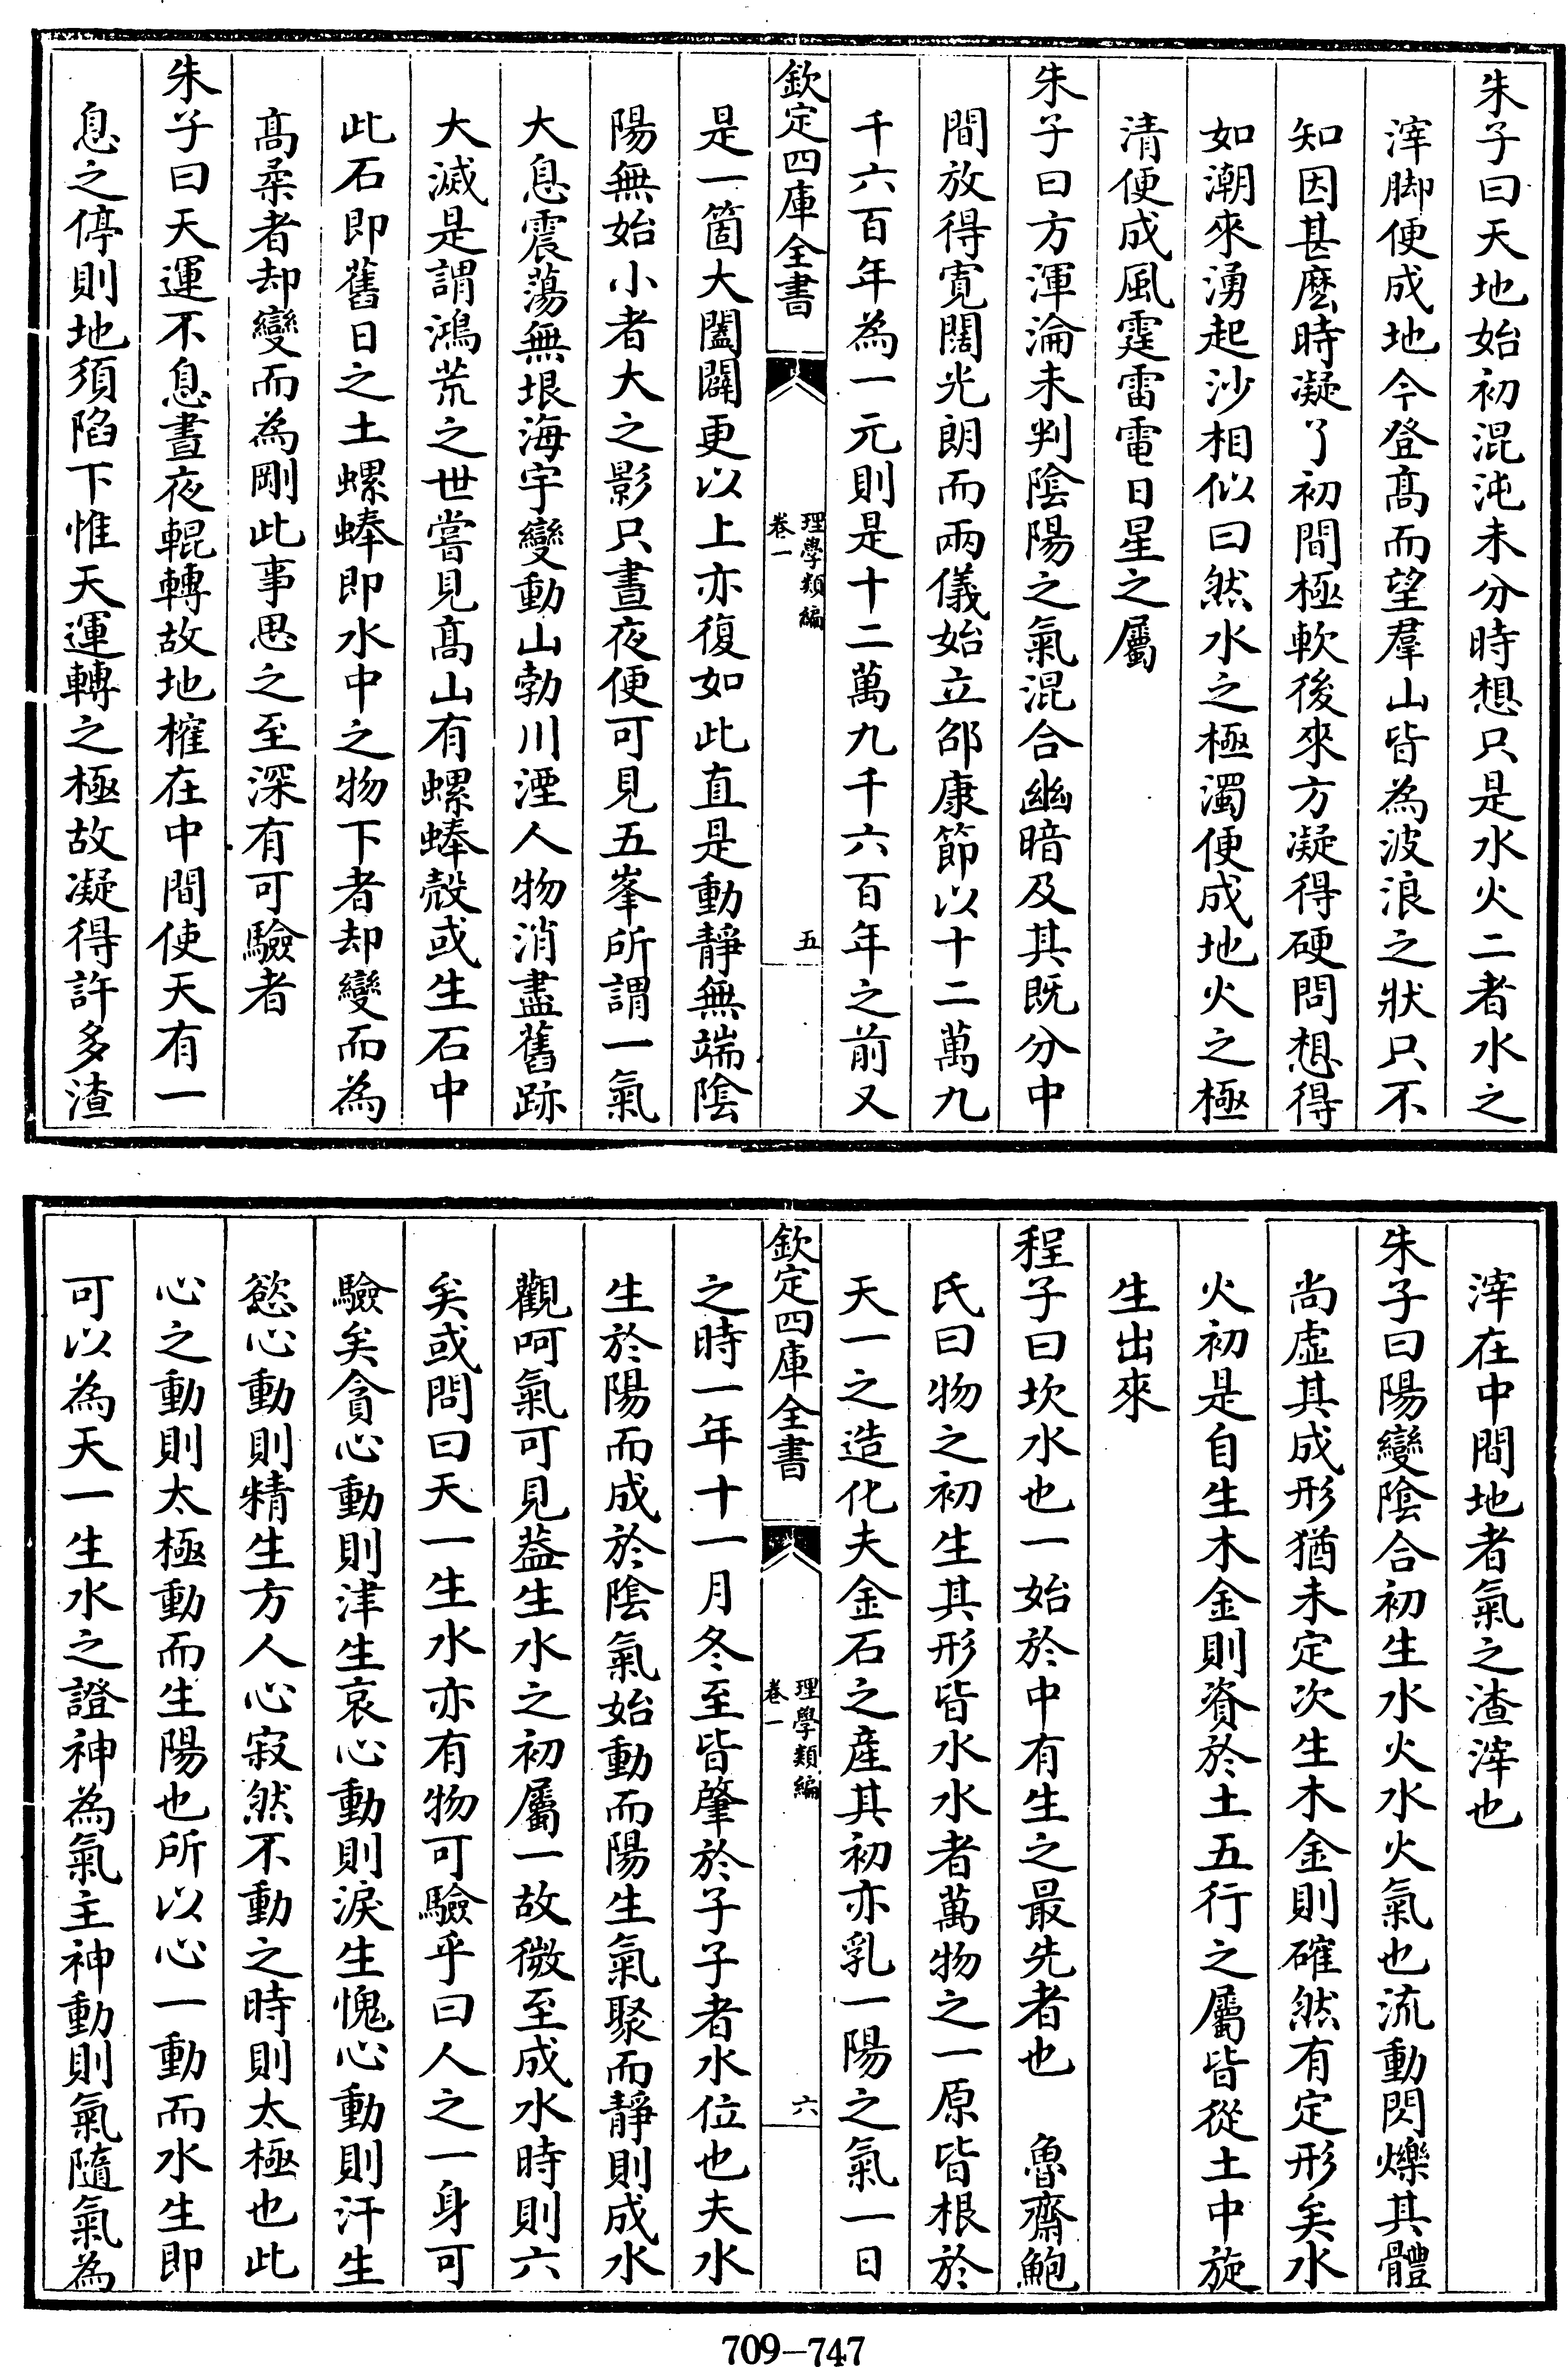 朱子曰天地始初混沌未分時想只是水火二者水之
滓脚便成地今登髙而望羣山皆為波浪之狀只不
知因甚麽時凝了初間極軟後來方凝得硬問想得
如潮來湧起沙相似曰然水之極濁便成地火之極
清便成風霆雷電日星之屬
朱子曰方渾淪未判陰陽之氣混合幽暗及其既分中
間放得寛闊光朗而兩儀始立邵康節以十二萬九
千六百年為一元則是十二萬九千六百年之前又
欽定四庫全書
理學類編
卷一
五
是一箇大闔闢更以上亦復如此直是動靜無端陰
陽無始小者大之影只晝夜便可見五峯所謂一氣
大息震蕩無垠海宇變動山勃川湮人物消盡舊跡
大滅是謂鴻荒之世嘗見髙山有螺蜯殻或生石中
此石即舊日之土螺蜯即水中之物下者却變而為
髙柔者却變而為剛此事思之至深有可驗者
朱子曰天運不息晝夜輥轉故地榷在中間使天有一
息之停則地須陷下惟天運轉之極故凝得許多渣
滓在中間地者氣之渣滓也
朱子曰陽變陰合初生水火水火氣也流動閃爍其體
尚虛其成形猶未定次生木金則確然有定形矣水
火初是自生木金則資於土五行之屬皆從土中旋
生出來
程子曰坎水也一始於中有生之最先者也　魯齋鮑
氏曰物之初生其形皆水水者萬物之一原皆根於
天一之造化夫金石之産其初亦乳一陽之氣一日
欽定四庫全書
理學類編
卷一
六
之時一年十一月冬至皆肇於子子者水位也夫水
生於陽而成於陰氣始動而陽生氣聚而靜則成水
觀呵氣可見葢生水之初屬一故微至成水時則六
矣或問曰天一生水亦有物可驗乎曰人之一身可
驗矣貪心動則津生哀心動則淚生愧心動則汗生
慾心動則精生方人心寂然不動之時則太極也此
心之動則太極動而生陽也所以心一動而水生即
可以為天一生水之證神為氣主神動則氣隨氣為
709-747